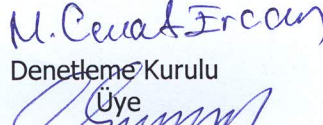 M. Cenat Ercan
Denetleme Kurulu
Üye